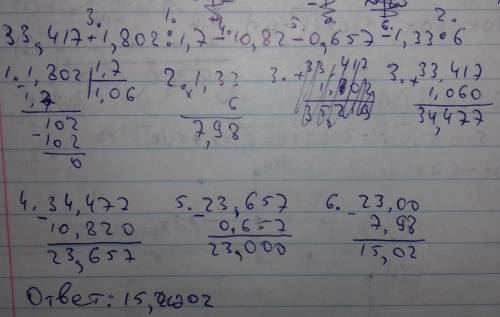 3. 1. 4. 5. 6. 2.
33,417+1,802:1,7-10,82-0,657-1,33·6
1. 1,802 | 1,7 2. 1,33 3. 33,417 3. 33,417
- 1,7 1,06 × 6 + 1,802 + 1,060
102 7,98 35,219 34,477
- 102
0
4. 34,477 5. 23,657 6. 23,00
- 10,820 - 0,657 - 7,98
23,657 23,000 15,02
Ответ: 15,02